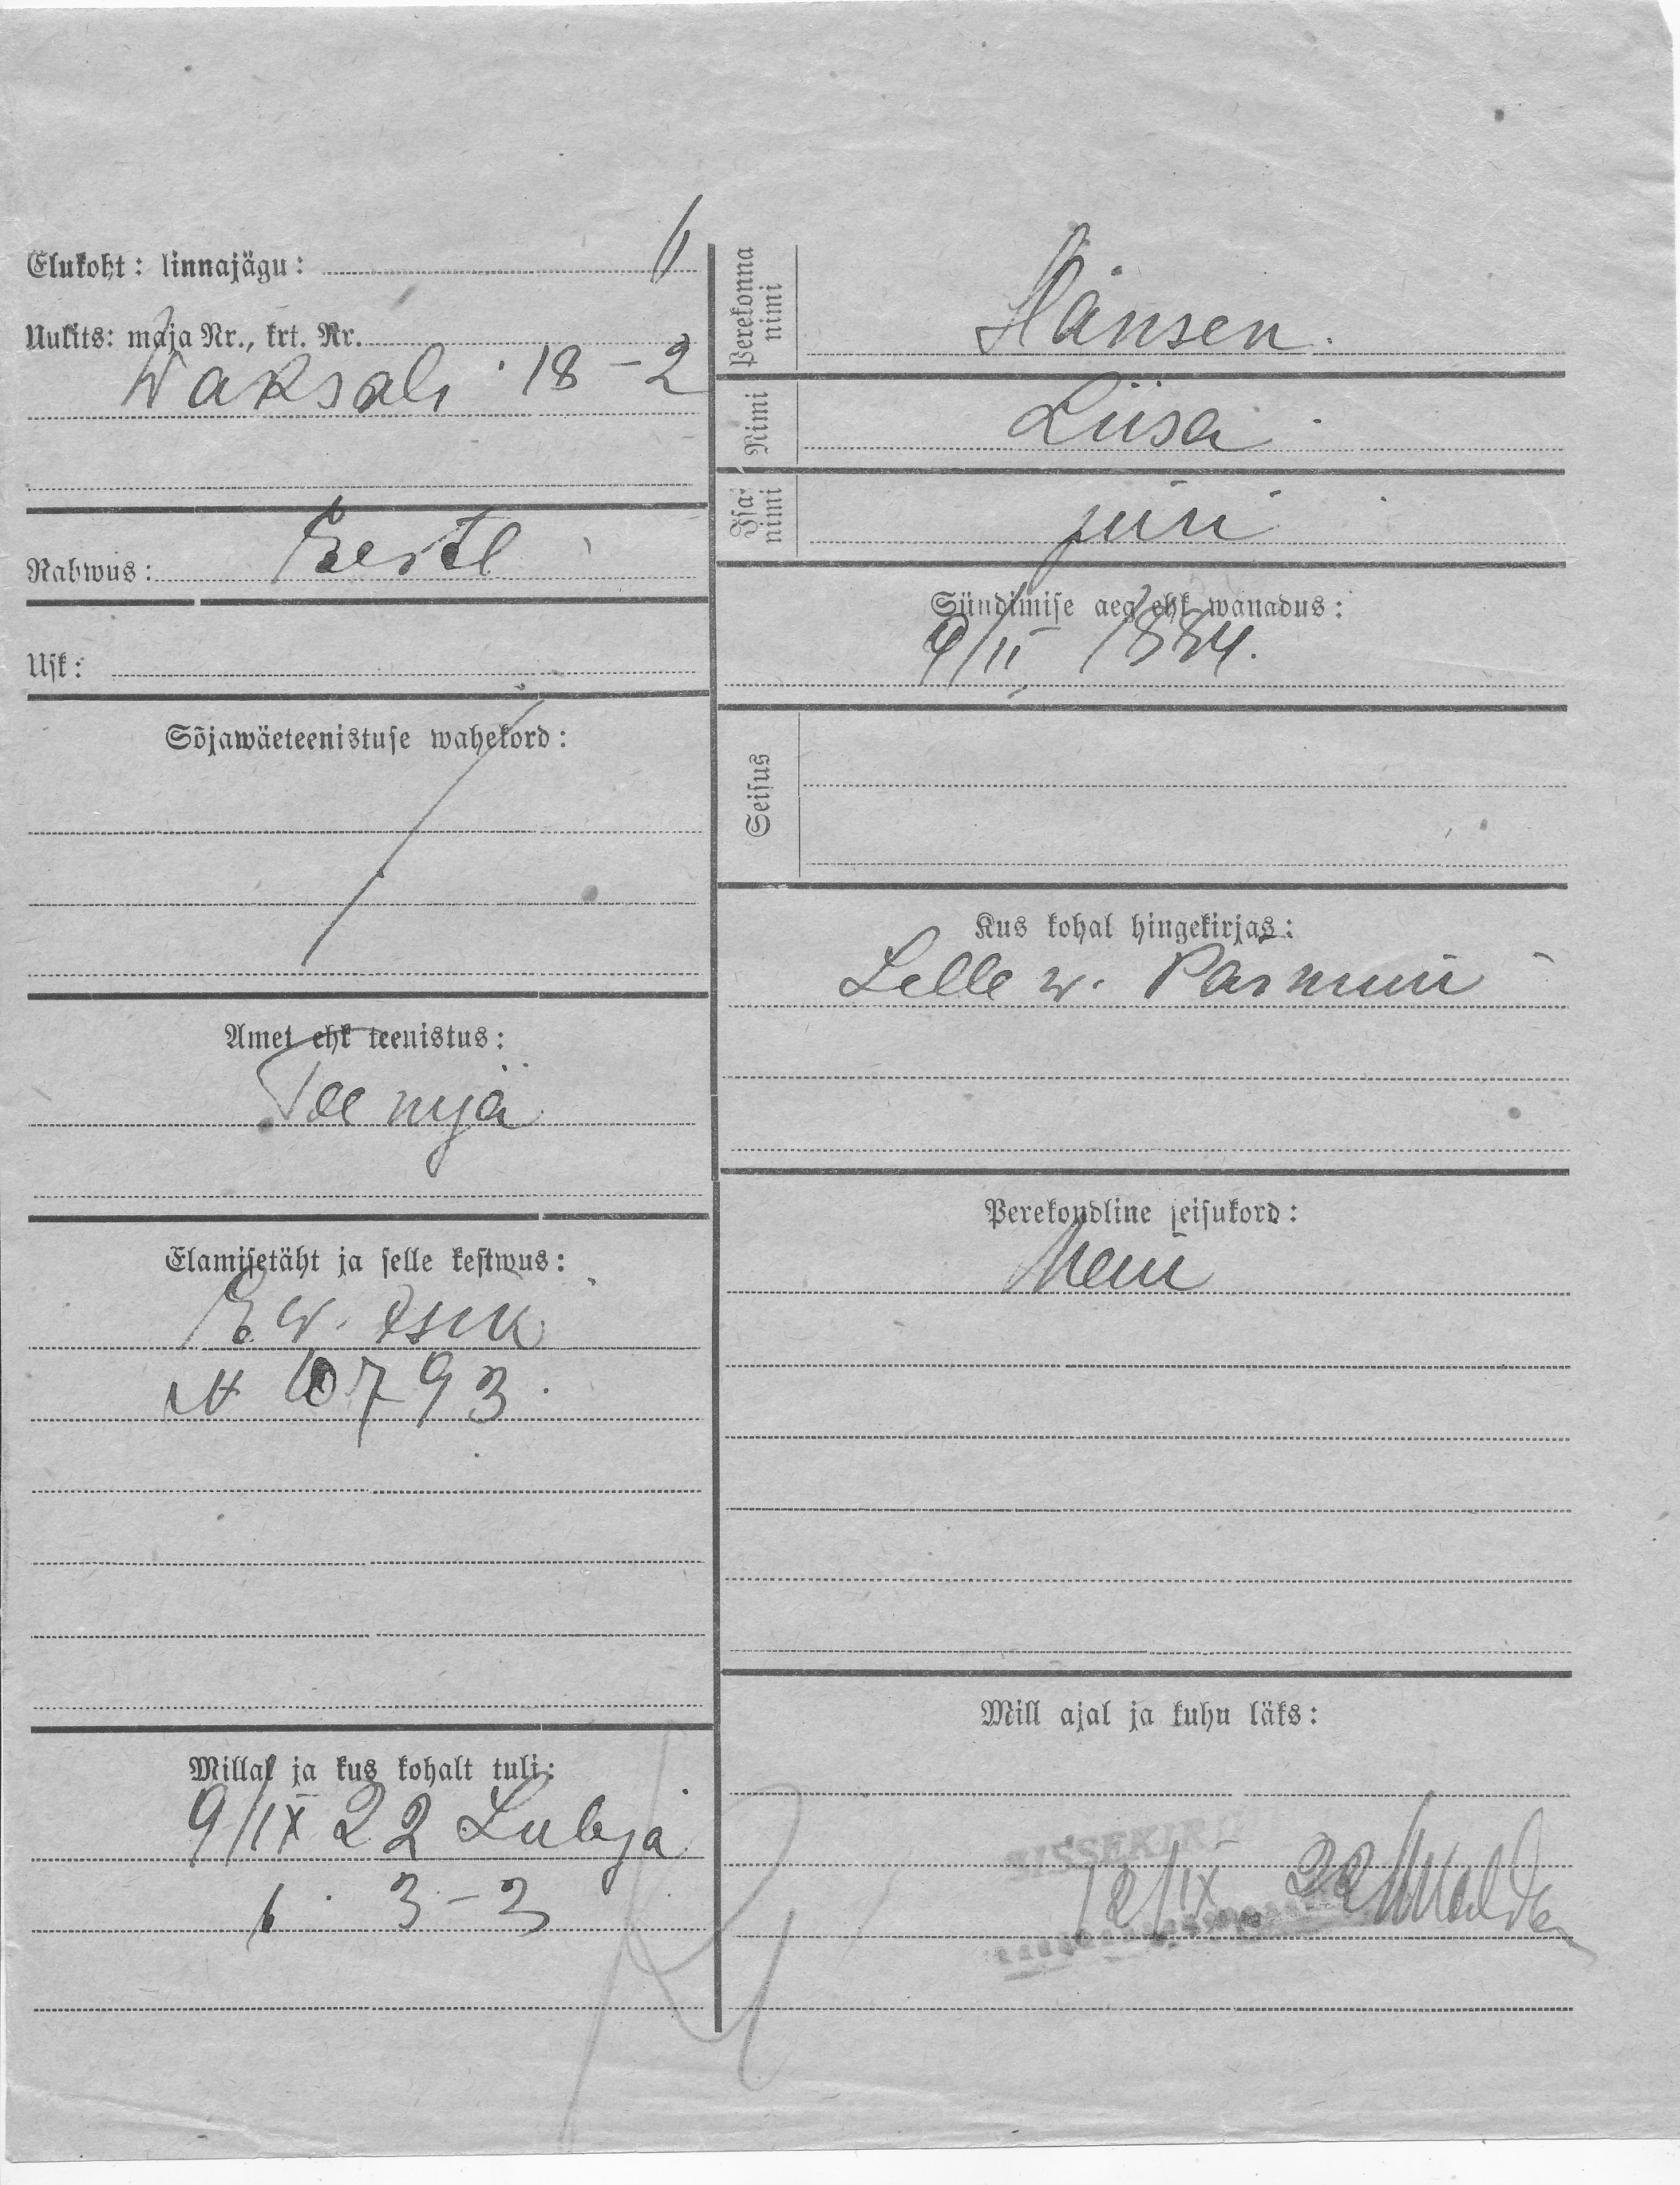 Elukoht: linnajagu: 6
Uulits: maja Nr., krt. Nr.
Waksali 18-2
Rahwus: Eestl
Usk:
Sõjawäeteenistuse wahekord:
Amet ehk teenistus:
Teenija
Elamisetäht ja selle kestwus:
E.W. isik
№ 10793.
Millal ja kus kohalt tuli:
9/IX 22 Lubja
6. 3-3
Perekonna nimi
Hansen.
Nimi
Liisa
Isa nimi
Jüri
Sündimise aeg ehk wanadus:
9/II 1884.
Seisus
Kus kohal hingekirjas:
Lelle w. Pärnum
Perekondline seisukord:
Neiu
Mill ajal ja kuhu läks:
SISSEKIR
12/IX 22